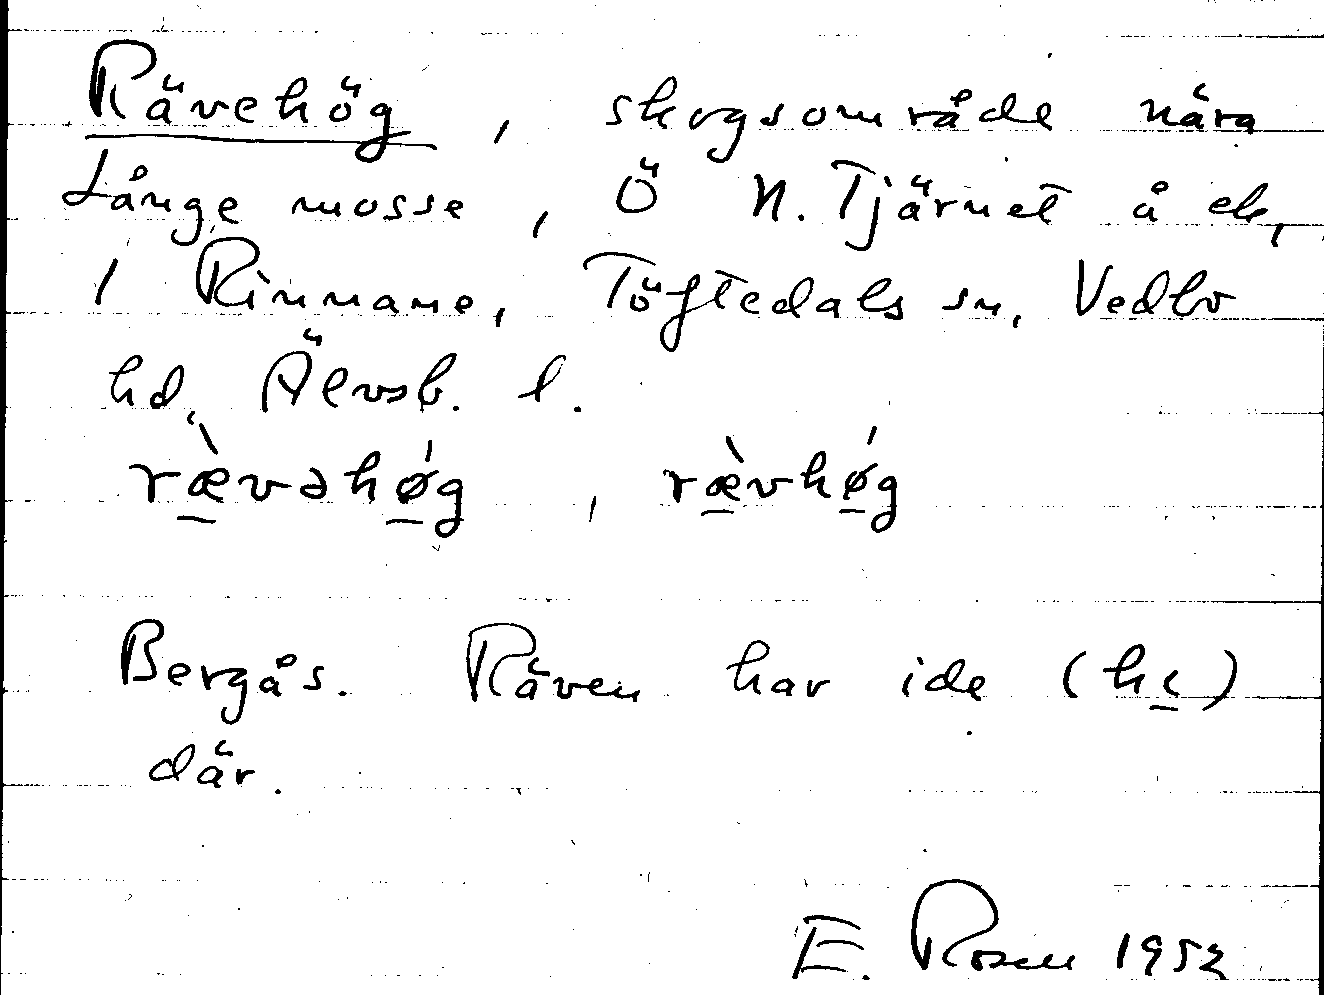 Rävehög, skogsområde nära
Långe mosse, Ö N. Tjärnet å ek,
1 Rinnane, Töftedals sn, Vedbo
hd, Älvsb. l.
ræ̀vəhǿg, ræ̀vhǿg
Bergås. Räven har ide (hi)
där.
E. Rosen 1952